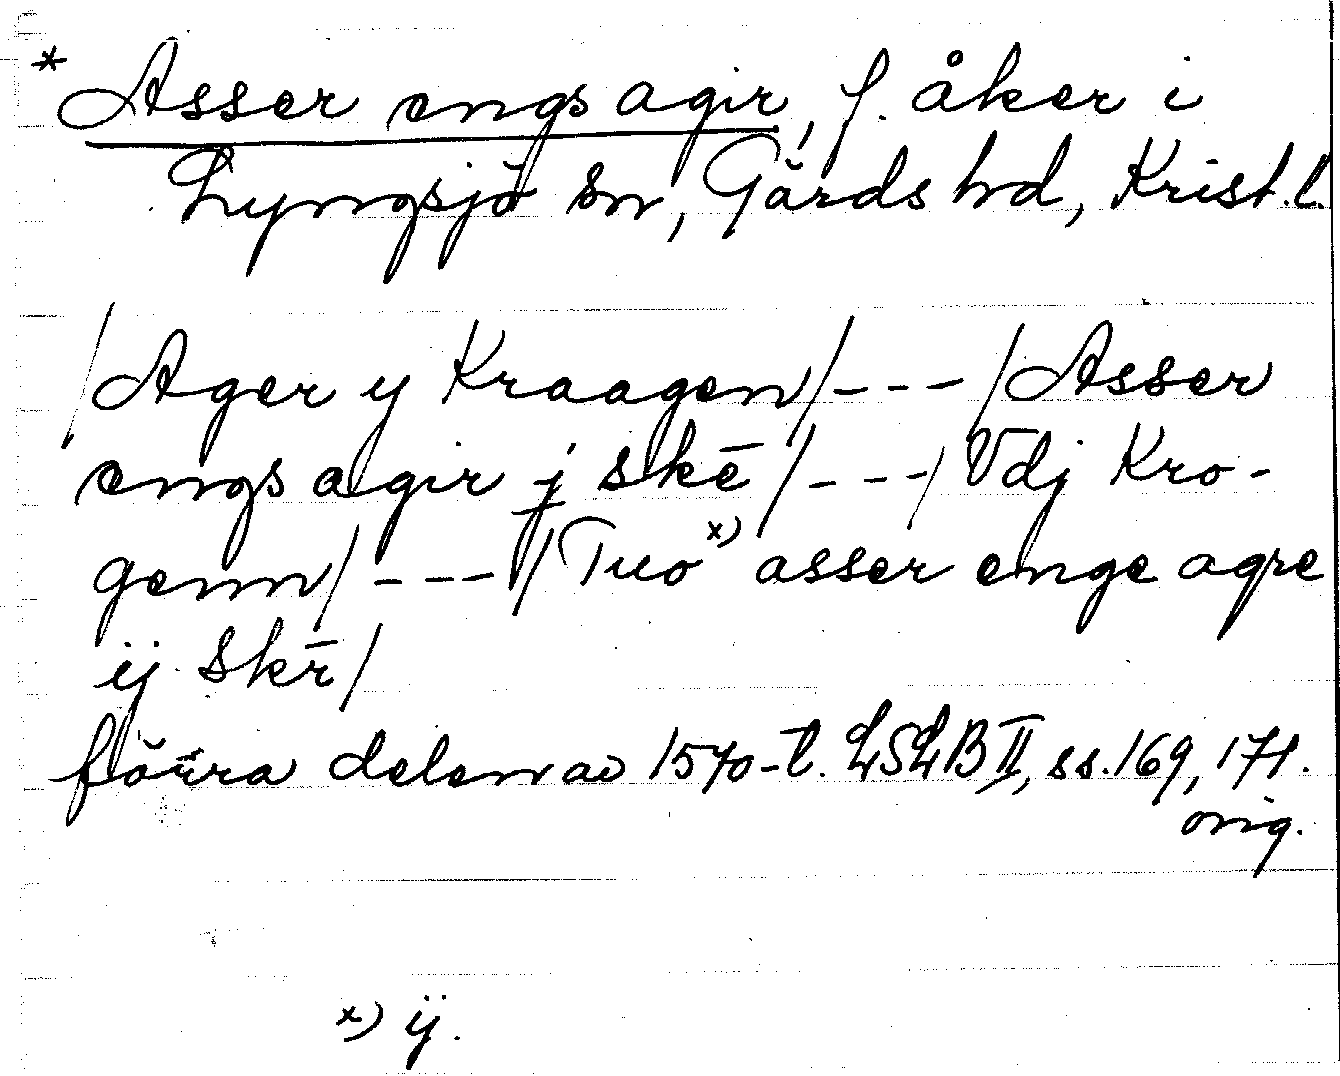 * Asser engs agir, f. åker i
Lyngsjö sn, Gärds hd, Krist. l.
/Ager y Kraagen/---/Asser
engs agir j skē/---/Vdj Kro-
genn/---/Tuo x) asser enge agre
ij skr̄/
förra delen av 1570-t. LSLB II, ss. 169, 171.
orig.
x) ÿ.